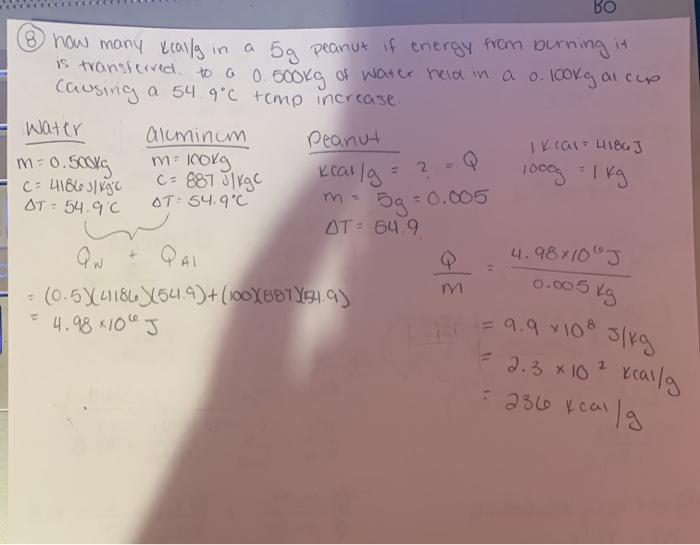 BO
⑧ how many kcal/g in a 5g peanut if energy from burning it
is transferred to a 0.500kg of water held in a 0.100kg al cup
causing a 54.9°C temp increase.
water
m = 0.500kg
C = 4186 J/kg°C
ΔT = 54.9°C
aluminum
m = 100kg
C = 887 J/kgC
ΔT = 54.9°C
Qw + QAl
= (0.5)(4186)(54.9)+(100)(887)(54.9)
= 4.98 × 10⁶ J
Peanut
kcal/g = ? = Q
m = 5g = 0.005
ΔT = 54.9
1 kcal = 4186 J
1000g = 1 kg
Q/m = 4.98 × 10⁶ J / 0.005 kg
= 9.9 × 10⁸ J/kg
= 2.3 × 10² kcal/g
= 236 kcal/g